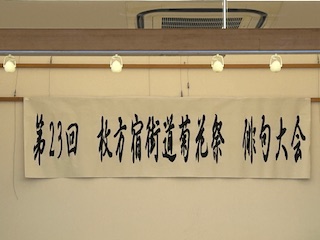 第23回 枚方宿街道菊花祭 俳句大会